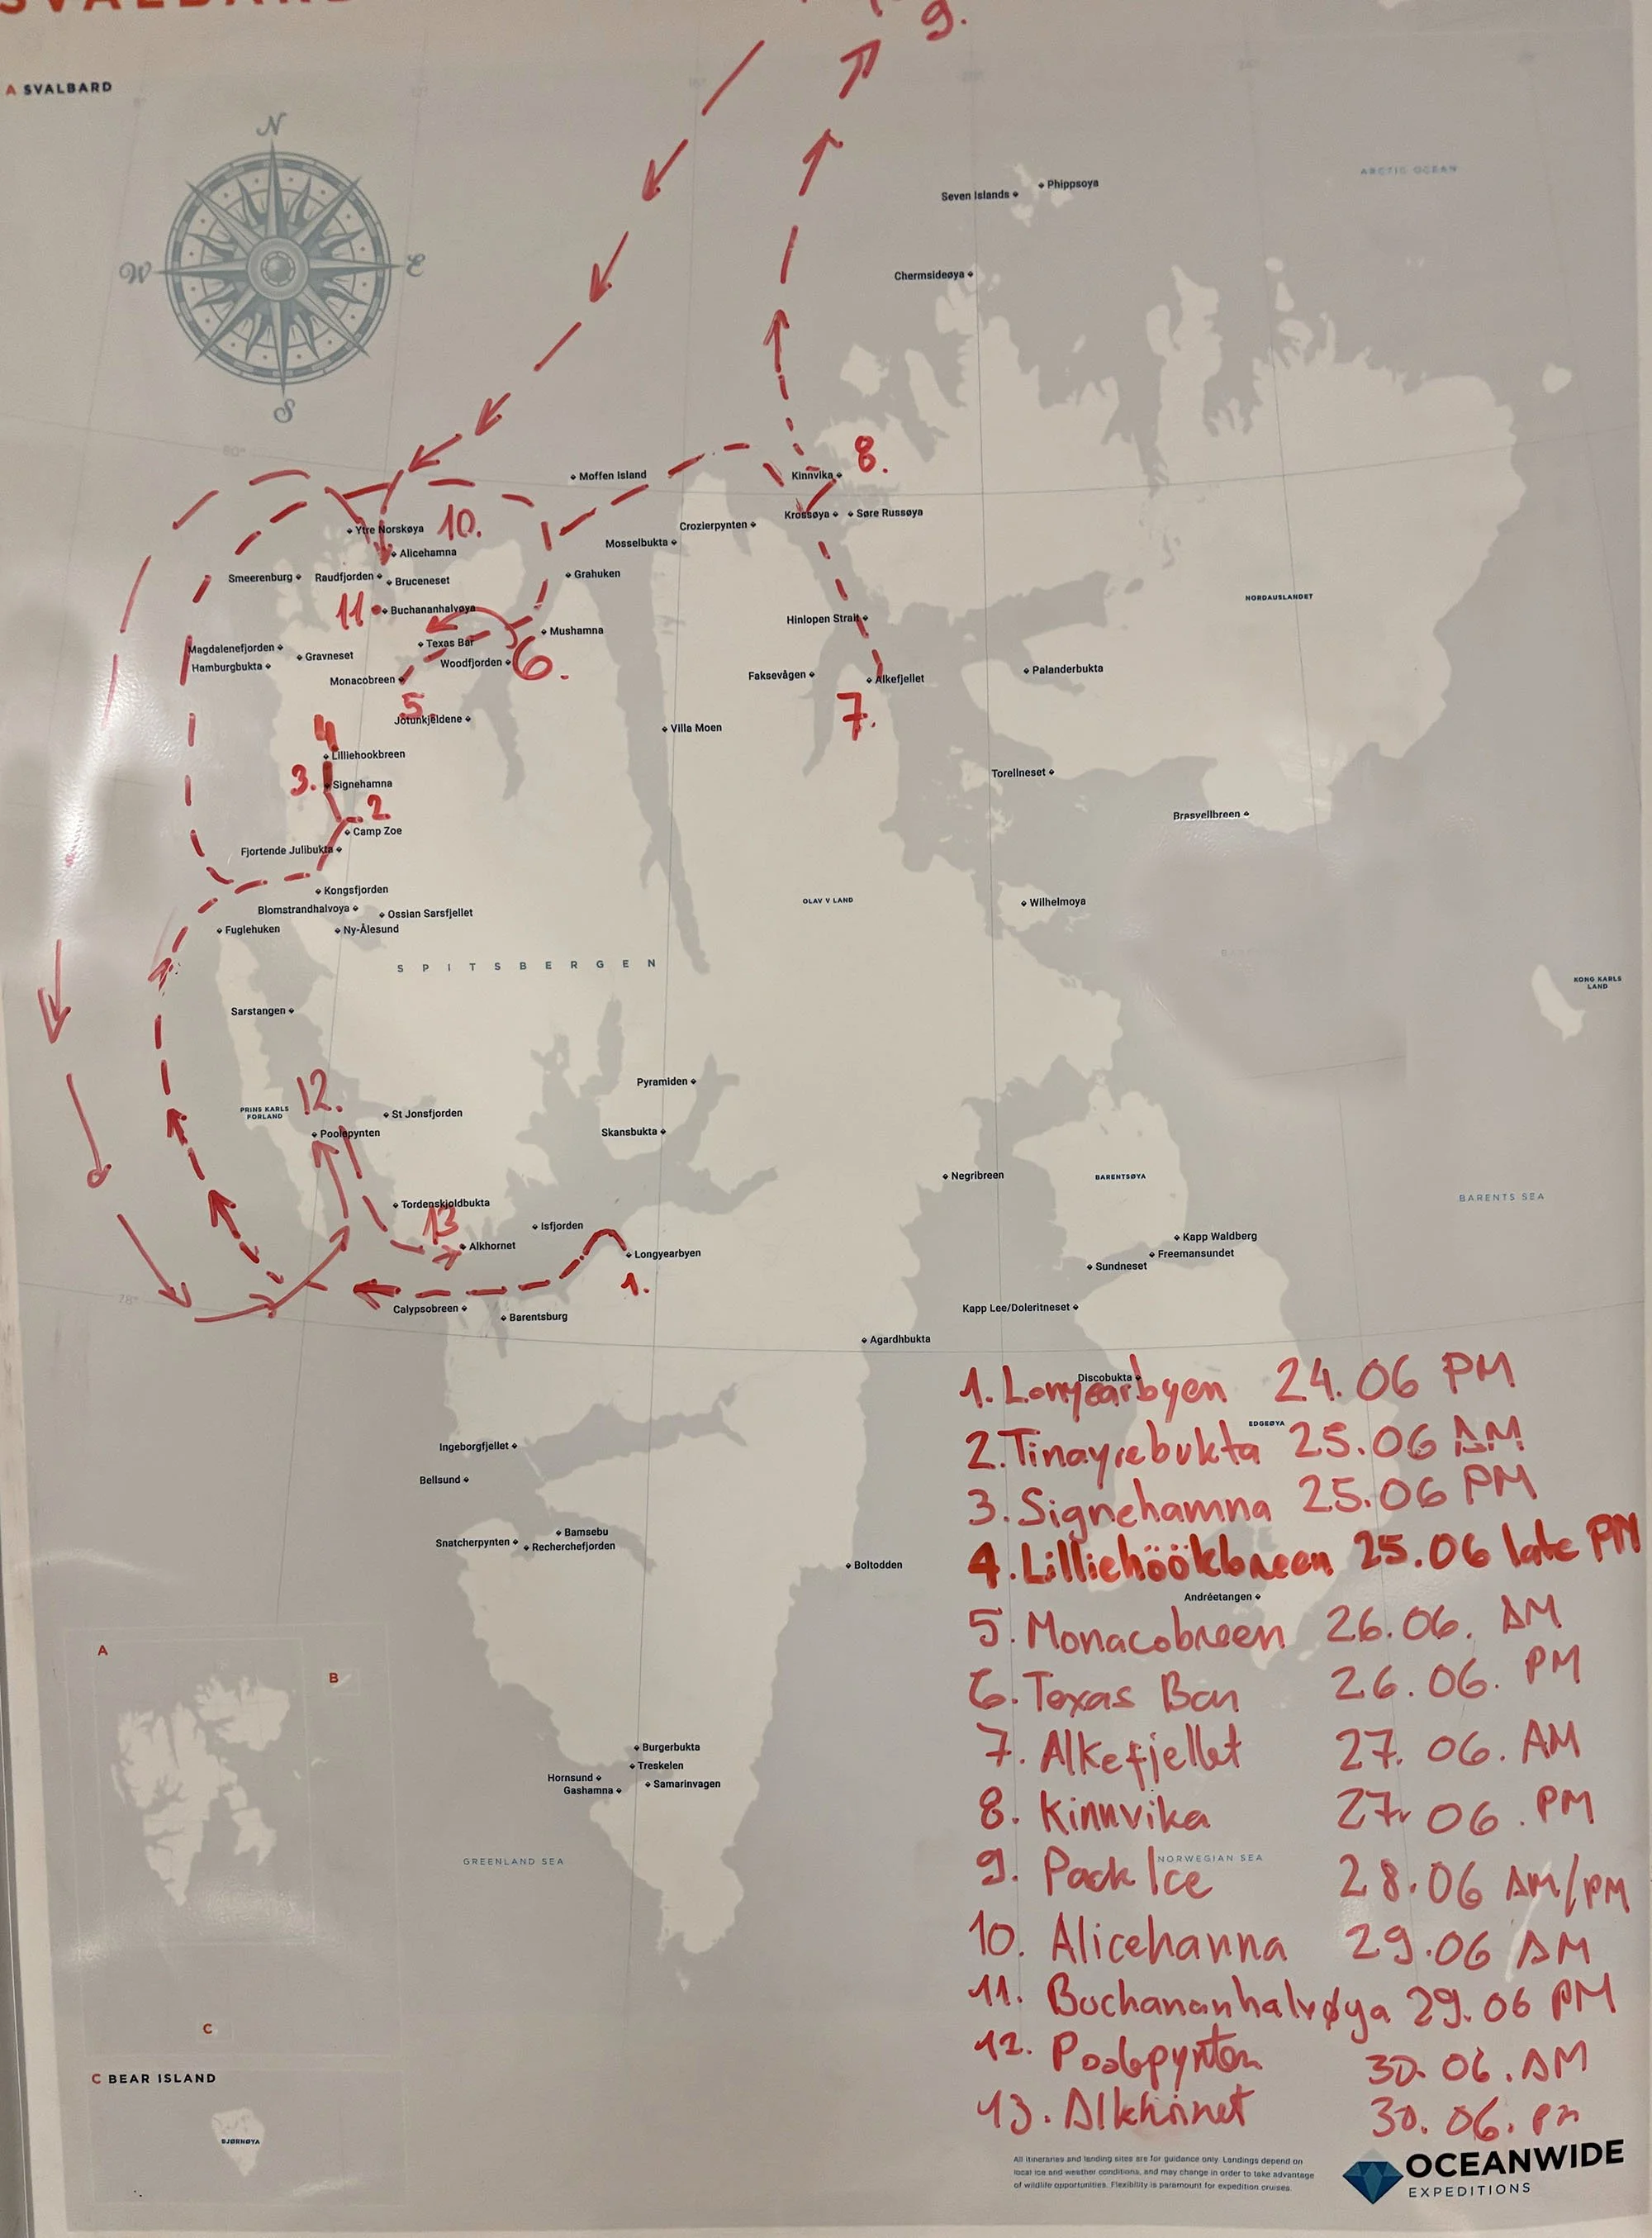 SVALBARD
9.
A SVALBARD
N
W
E
S
ARCTIC OCEAN
Phippsoya
Seven Islands
Chermsideøya
80°
8.
Moffen Island
Kinnvika
10.
Krossøya
Søre Russøya
Crozierpynten
Ytre Norskøya
Mosselbukta
Alicehamna
Smeerenburg
Raudfjorden
Bruceneset
Grahuken
NORDAUSLANDET
11
Buchananhalvøya
Hinlopen Strait
Mushamna
Texas Bar
Magdalenefjorden
Gravneset
Woodfjorden
6.
Hamburgbukta
Monacobreen
Faksevågen
Alkefjellet
Palanderbukta
5.
7.
Jotunkjeldene
Villa Moen
4
Lilliehookbreen
3.
Signehamna
Torellneset
2.
Camp Zoe
Bråsvellbreen
Fjortende Julibukta
Kongsfjorden
Blomstrandhalvoya
Ossian Sarsfjellet
OLAV V LAND
Wilhelmoya
Fuglehuken
Ny-Ålesund
SPITSBERGEN
KONG KARLS
LAND
Sarstangen
Pyramiden
12.
PRINS KARLS
FORLAND
St Jonsfjorden
Poolepynten
Skansbukta
Negribreen
BARENTSØYA
BARENTS SEA
Tordenskjoldbukta
13
Isfjorden
Alkhornet
Longyearbyen
Kapp Waldberg
Freemansundet
Sundneset
1.
78°
Calypsobreen
Barentsburg
Kapp Lee/Doleritneset
Agardhbukta
Discobukta
1. Longyearbyen 24.06 PM
EDGEØYA
2. Tinayrebukta 25.06 AM
Ingeborgfjellet
Bellsund
3. Signehamna 25.06 PM
Bamsebu
Snatcherpynten
Recherchefjorden
4. Lilliehöökbreen 25.06 late PM
Boltodden
Andréetangen
5. Monacobreen 26.06. AM
A
B
6. Texas Bar 26.06. PM
7. Alkefjellet 27.06. AM
Burgerbukta
Treskelen
Hornsund
Samarinvagen
Gashamna
8. Kinnvika 27.06. PM
GREENLAND SEA
NORWEGIAN SEA
9. Pack Ice 28.06 AM/PM
10. Alicehanna 29.06 AM
11. Buchananhalvøya 29.06 PM
C
12. Poolepynten 30.06. AM
C BEAR ISLAND
13. Alkhornet 30.06. PM
BJØRNØYA
All itineraries and landing sites are for guidance only. Landings depend on
local ice and weather conditions, and may change in order to take advantage
of wildlife opportunities. Flexibility is paramount for expedition cruises.
OCEANWIDE
EXPEDITIONS